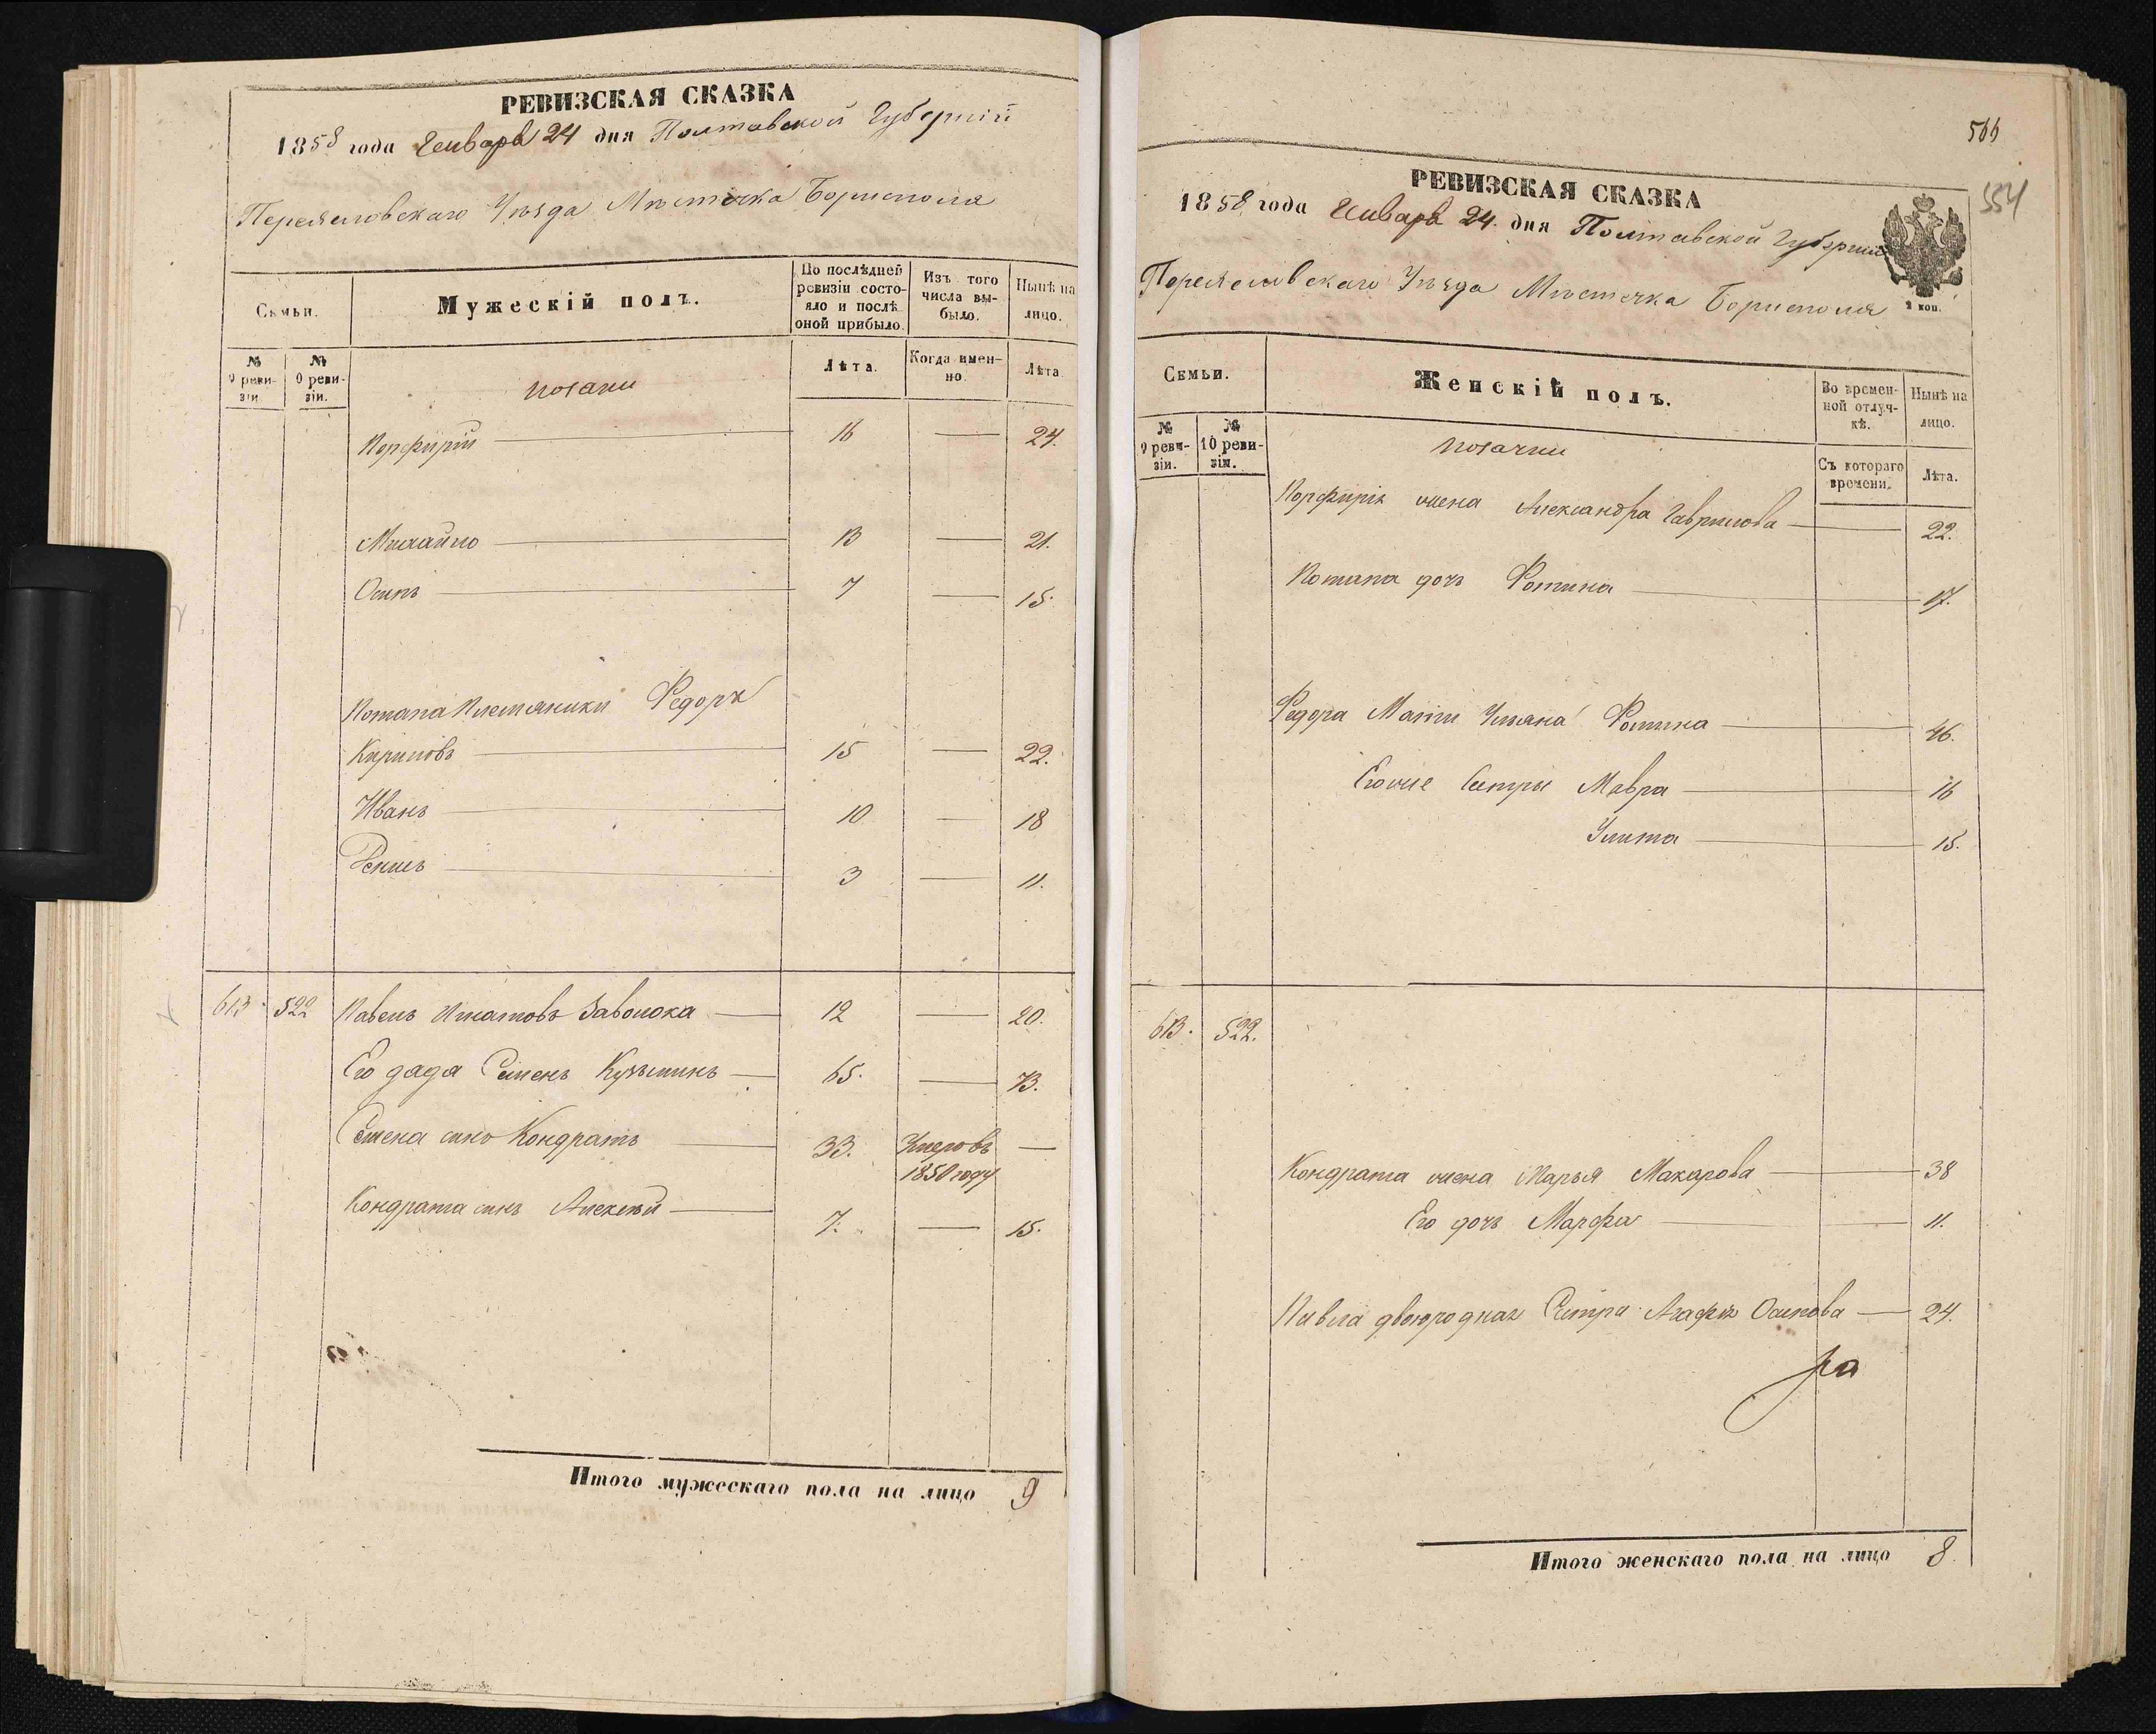 РЕВИЗСКАЯ СКАЗКА
1858 года Генваря 24 дня Полтавской Губерніи
Переяславскаго Уѣзда Мѣстечка Борисполя
Семьи.
Мужескій полъ.
По послѣдней ревизіи состояло и послѣ оной прибыло.
Изъ того числа выбыло.
Нынѣ на лицо.
№ 9 ревизіи.
№ 0 ревизіи.
козаки
Лѣта.
Когда именно.
Лѣта
Порфирій 16 — 24.
Михайло 13 — 21.
Осипъ 7 — 15.
Потапа Племяники Федоръ
Кириловъ 15 — 22.
Иванъ 10 — 18
Денисъ 3 — 11.
613. 522 Павелъ Игнатовъ Заволока 12 — 20.
Его дядя Семенъ Кузьминъ 65. — 73.
Семена сынъ Кондратъ 33. Умеръ въ —
1850 году
Кондрата сынъ Алексѣй 7. — 15.
Итого мужескаго пола на лицо 9
554
РЕВИЗСКАЯ СКАЗКА
1858 года Генваря 24. дня Полтавской Губерніи
Переяславскаго Уѣзда Мѣстечка Борисполя
2 коп.
Семьи.
Женскій полъ.
Во временной отлучкѣ.
Нынѣ на лицо.
№ 9 ревизіи.
№ 10 ревизіи.
козачки
Съ котораго времени.
Лѣта.
Порфирія жена Александра Гаврилова — 22.
Потапа дочь Фотина — 17.
Федора Мати Ульяна Фомина — 46.
Егожже Сестры Мавра — 16
Улита — 15.
613. 522.
Кондрата жена Марья Макарова — 38
Его дочь Марфа — 11.
Павла двоюродная Сестра Агафія Осипова — 24.
Итого женскаго пола на лицо 8.